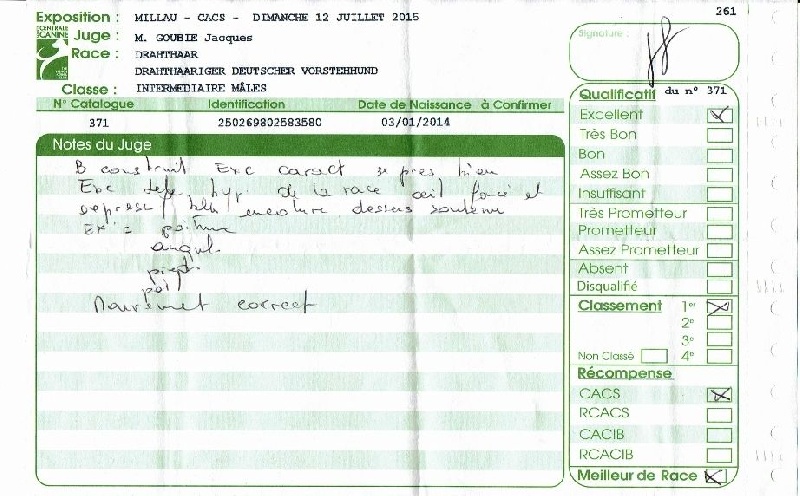 261
Exposition : MILLAU - CACS - DIMANCHE 12 JUILLET 2015
CENTRALE CANINE
Juge : M. GOUBIE Jacques
Race : DRAHTHAAR
DRAHTHAARIGER DEUTSCHER VORSTEHHUND
Classe : INTERMEDIAIRE MÂLES
N° Catalogue Identification Date de Naissance à Confirmer
371 250269802583580 03/01/2014
Notes du Juge
B construit Exc caract se pres bien
Exc tete typ. de la race œil foncé et
encolure dessus soutenu
Exc = poitrine
angul.
pieds
poil
Mouvement correct
Signature :
Qualificatif du n° 371
Excellent
Très Bon
Bon
Assez Bon
Insuffisant
Très Prometteur
Prometteur
Assez Prometteur
Absent
Disqualifié
Classement 1er
2e
3e
Non Classé 4e
Récompense
CACS
RCACS
CACIB
RCACIB
Meilleur de Race